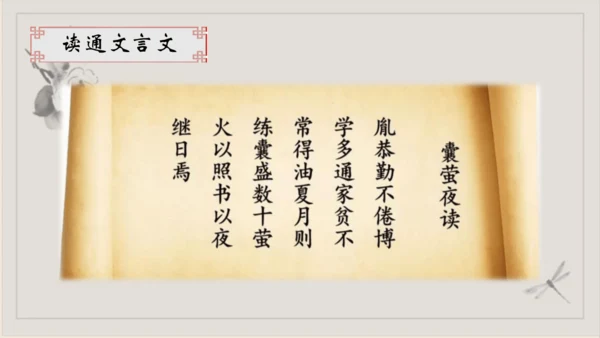 读通文言文
囊萤夜读
胤恭勤不倦博
学多通家贫不
常得油夏月则
练囊盛数十萤
火以照书以夜
继日焉